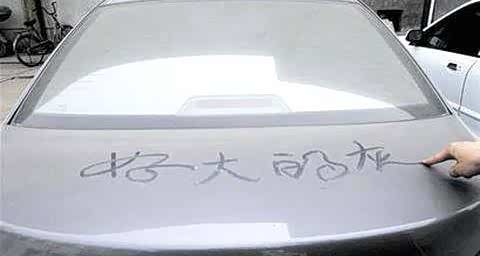 好大的灰